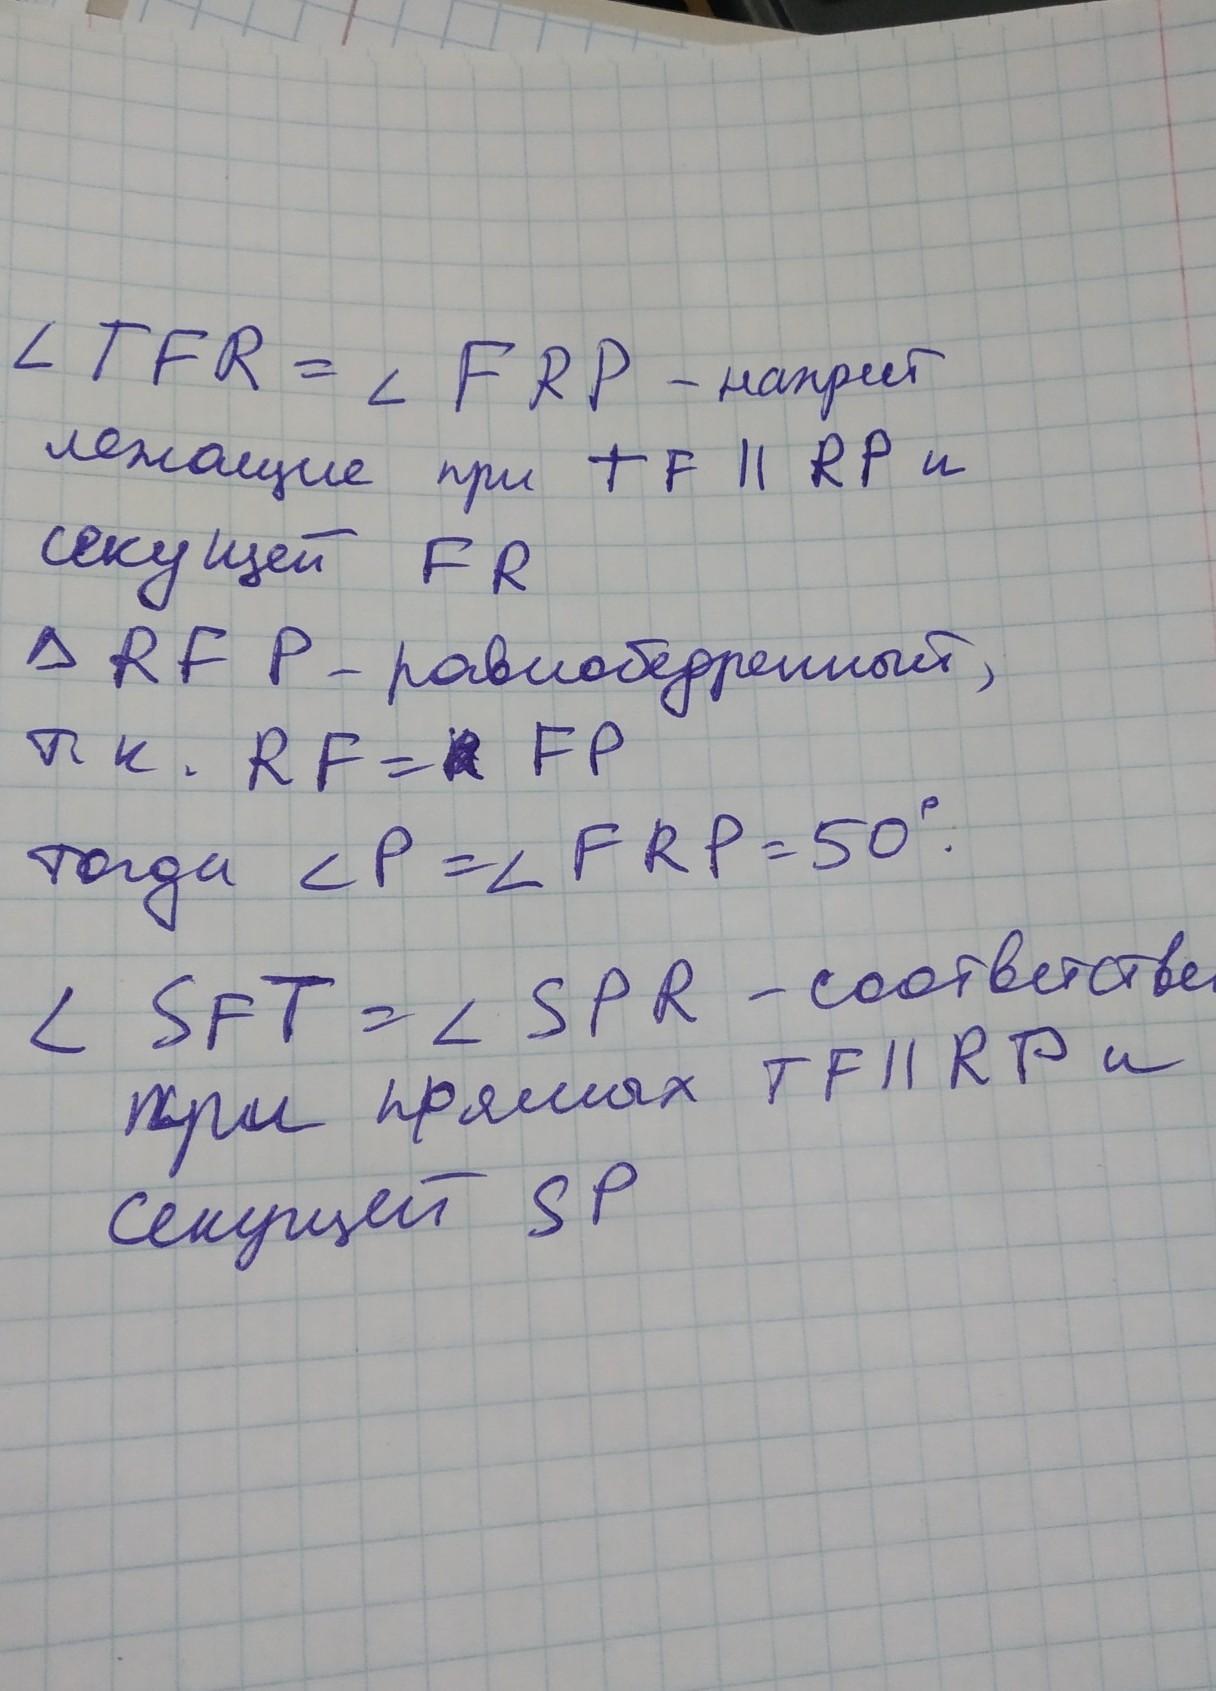 ∠TFR = ∠FRP - накрест
лежащие при TF || RP и
секущей FR
△RFP - равнобедренный,
т.к. RF = FP
тогда ∠P = ∠FRP = 50°.
∠SFT = ∠SPR - соответствен
при прямых TF || RP и
секущей SP